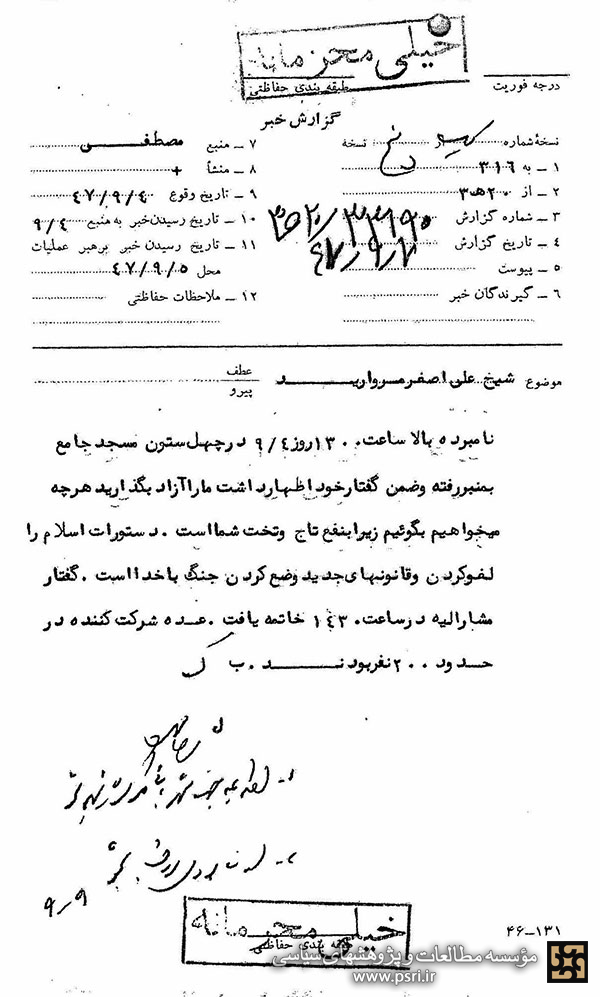 خیلی محرمانه
طبقه بندی حفاظتی
درجه فوریت
گزارش خبر
نسخهٔ شماره از نسخه
۱ ـ به ۳۱۶
۲ ـ از ۲۰ ه‍ ۳
۳ ـ شماره گزارش
۴ ـ تاریخ گزارش
۵ ـ پیوست
۶ ـ گیرندگان خبر
۷ ـ منبع مصطفی
۸ ـ منشأ +
۹ ـ تاریخ وقوع ۴۷/۹/۴
۱۰ ـ تاریخ رسیدن خبر به منبع ۹/۴
۱۱ ـ تاریخ رسیدن خبر برهبر عملیات
محل ۴۷/۹/۵
۱۲ ـ ملاحظات حفاظتی
موضوع شیخ علی اصغر مروارید
عطف
پیرو
نامبرده بالا ساعت ۱۳۰۰ روز ۹/۴ در چهل ستون مسجد جامع
بمنبر رفته وضمن گفتار خود اظهار داشت ما را آزاد بگذارید هر چه
میخواهیم بگوئیم زیرا بنفع تاج وتخت شما است . دستورات اسلام را
لغو کردن وقانونهای جدید وضع کردن جنگ با خدا است . گفتار
مشارالیه در ساعت ۱۴۳۰ خاتمه یافت . عده شرکت کننده در
حدود ۲۰۰ نفر بودند . ب ک
۹ـ۹
خیلی محرمانه
طبقه بندی حفاظتی
۴۶-۱۳۱
مؤسسه مطالعات و پژوهشهای سیاسی
www.psri.ir